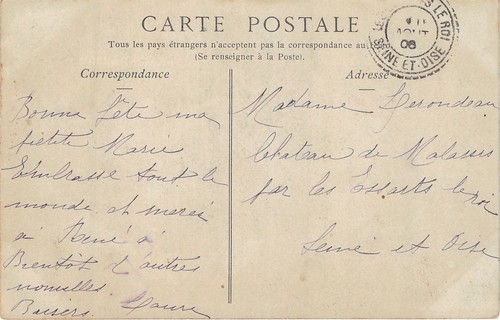 CARTE POSTALE
Tous les pays étrangers n'acceptent pas la correspondance au
(Se renseigner à la Poste).
Correspondance
Bonne fête ma
petite Marie
Embrasse tout le
monde et merci
à René à
Bientôt d'autres
nouvelles
Baisers Laure
LE ROI
AOUT
08
SEINE ET OISE
Adresse
Madame
Château de Malassis
par les Essarts le roi
Seine et Oise